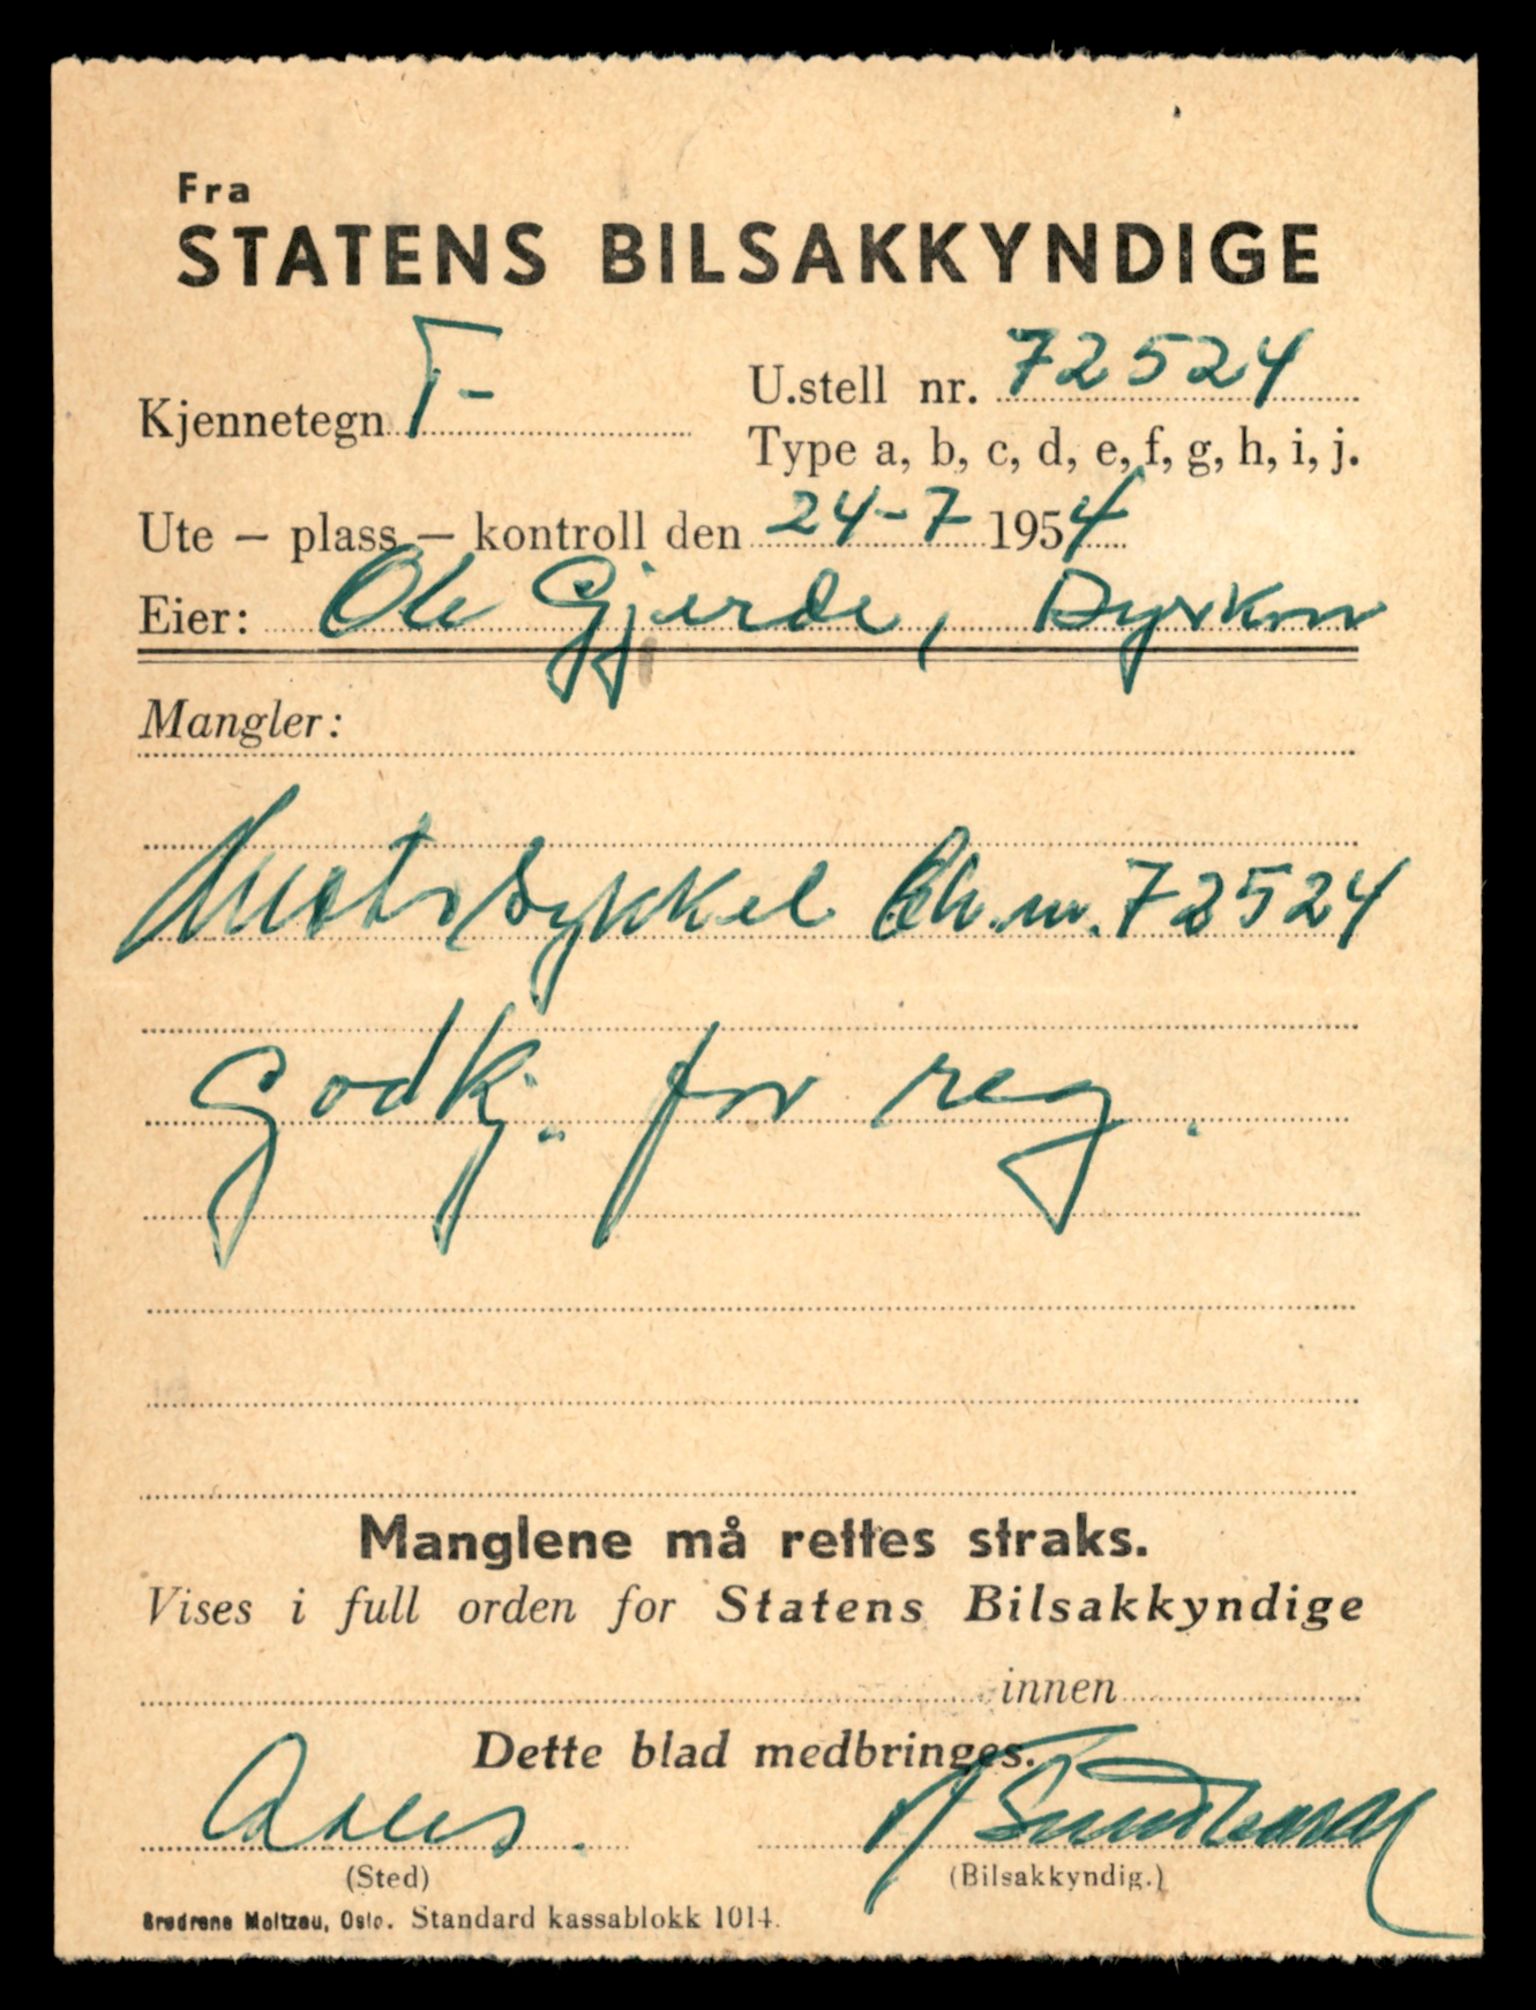 Fra
STATENS BILSAKKYNDIGE
Kjennetegn T-
U.stell nr. 72524
Type a, b, c, d, e, f, g, h, i, j.
Ute – plass – kontroll den 24-7 1954
Eier: Ole Gjerde, Dyrkorn
Mangler:
Motorsykkel Ch.nr. 72524
Godkj. for reg.
Manglene må rettes straks.
Vises i full orden for Statens Bilsakkyndige
innen
Dette blad medbringes.
(Sted)
(Bilsakkyndig.)
Brødrene Moltzau, Oslo. Standard kassablokk 1014.